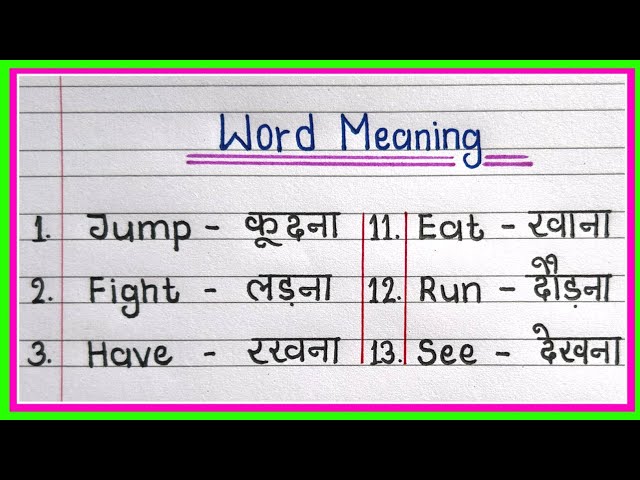 Word Meaning
1. Jump - कूदना 11. Eat - खाना
2. Fight - लड़ना 12. Run - दौड़ना
3. Have - रखना 13. See - देखना